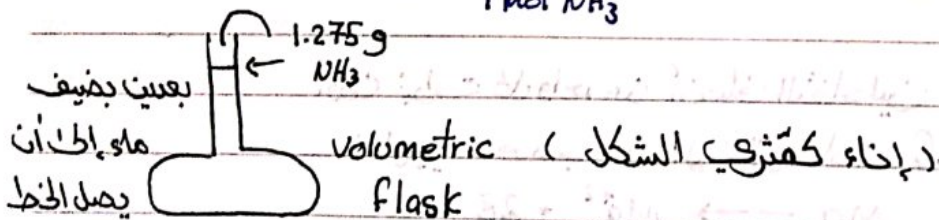 1 mol NH₃
1.275 g
NH₃
بعدين بضيف
ماء إلى أن
يصل الخط
volumetric (إناء كمّثري الشكل)
flask